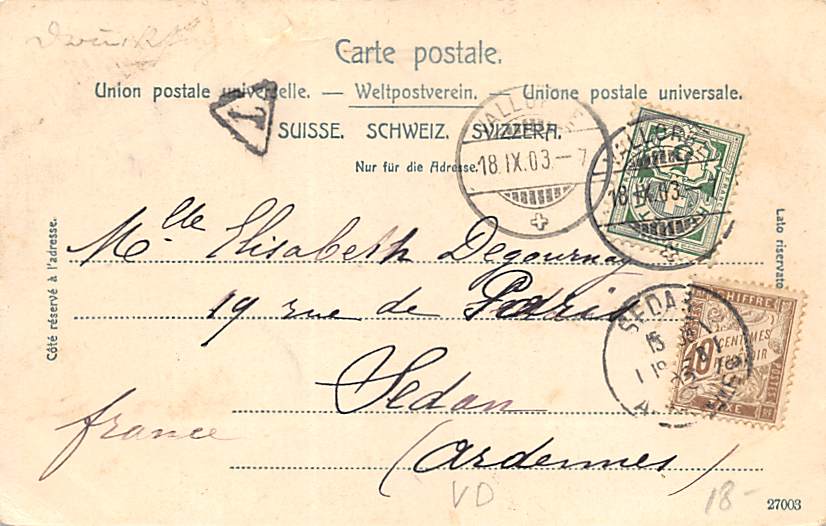 Carte postale.
Union postale universelle. — Weltpostverein. — Unione postale universale.
T
SUISSE. SCHWEIZ. SVIZZERA.
Nur für die Adresse.
VALLORBE
18.IX.03.–7
VALLORBE
18.IX.03.–
Côté réservé à l'adresse.
Lato riservato
Mlle Elisabeth Degournay
19 rue de Paris
Sedan
france
(Ardennes)
SEDAN
CHIFFRE
10 CENTIMES
TAXE
VD
18–
27003